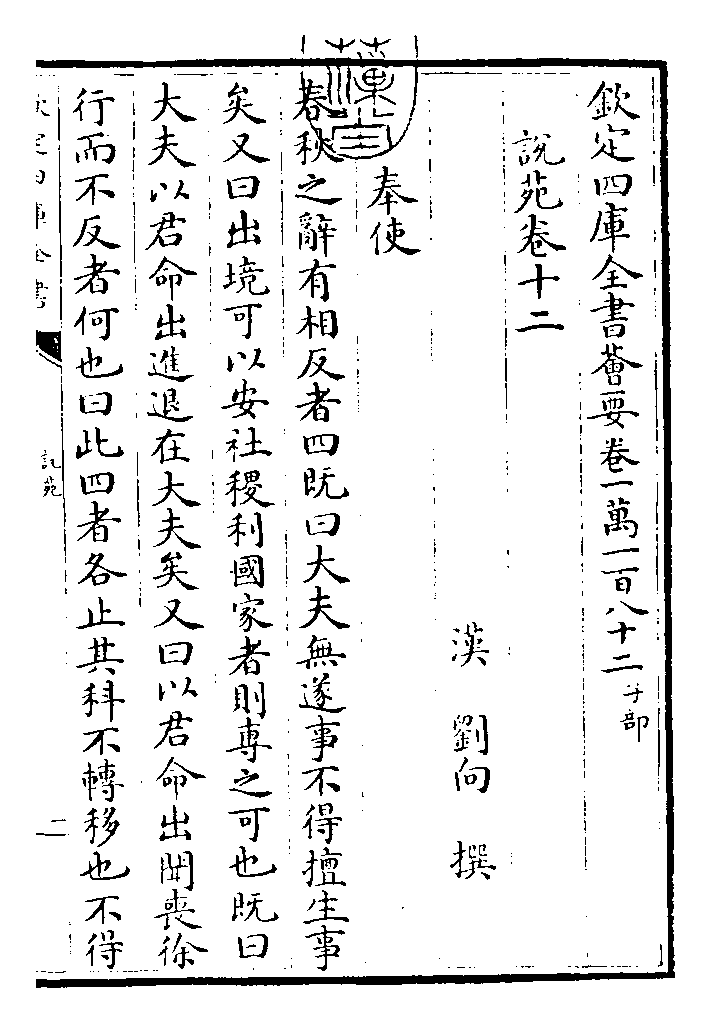 欽定四庫全書薈要卷一萬一百八十二子部
說苑卷十二
漢 劉向 撰
奉使
春秋之辭有相反者四既曰大夫無遂事不得擅生事
矣又曰出境可以安社稷利國家者則專之可也既曰
大夫以君命出進退在大夫矣又曰以君命出聞喪徐
行而不反者何也曰此四者各止其科不轉移也不得
欽定四庫全書
說苑
一